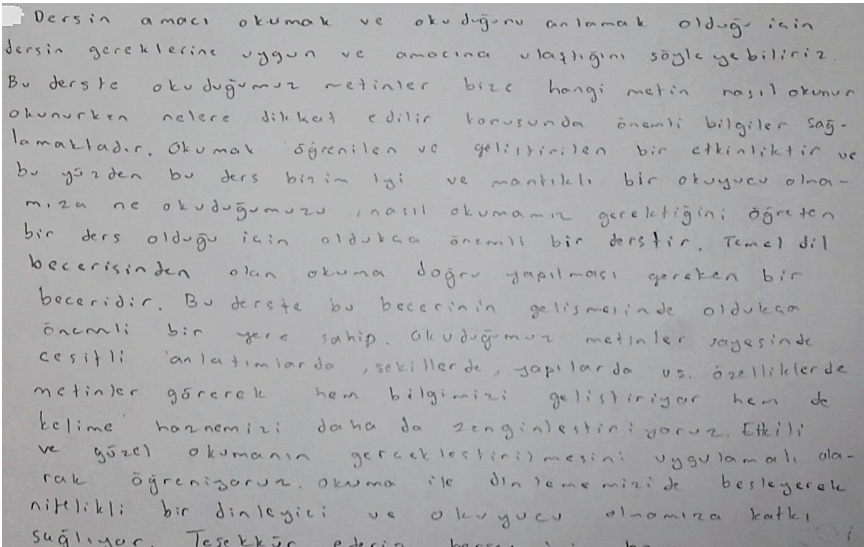 Dersin amacı okumak ve okuduğunu anlamak olduğu için
dersin gereklerine uygun ve amacına ulaştığını söyleyebiliriz.
Bu derste okuduğumuz metinler bize hangi metin nasıl okunur
okunurken nelere dikkat edilir konusunda önemli bilgiler sağ-
lamaktadır. Okumak öğrenilen ve geliştirilen bir etkinliktir ve
bu yüzden bu ders bizim iyi ve mantıklı bir okuyucu olma-
mıza ne okuduğumuzu, nasıl okumamız gerektiğini öğreten
bir ders olduğu için oldukça önemli bir derstir. Temel dil
becerisinden olan okuma doğru yapılması gereken bir
beceridir. Bu derste bu becerinin gelişmesinde oldukça
önemli bir yere sahip. Okuduğumuz metinler sayesinde
çeşitli anlatımlarda, şekillerde, yapılarda vs. özelliklerde
metinler görerek hem bilgimizi geliştiriyor hem de
kelime haznemizi daha da zenginleştiriyoruz. Etkili
ve güzel okumanın gerçekleştirilmesini uygulamalı ola-
rak öğreniyoruz. Okuma ile dinlememizi de besleyerek
nitelikli bir dinleyici ve okuyucu olmamıza katkı
sağlıyor. Teşekkür ederim